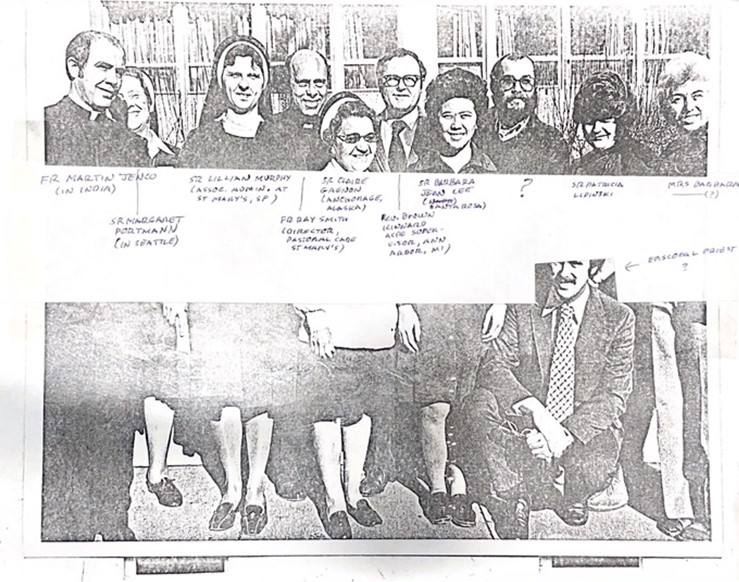 FR MARTIN JENCO
(IN INDIA)
SR MARGARET
PORTMANN
(IN SEATTLE)
SR LILLIAN MURPHY
(ASSOC. ADMIN. AT
ST MARY'S, SF)
FR RAY SMITH
(DIRECTOR,
PASTORAL CARE
ST MARY'S)
SR CLAIRE
GAGNON
(ANCHORAGE,
ALASKA)
REV. BROWN
KINNARD
ACPE SUPER-
VISOR, ANN
ARBOR, MI)
SR BARBARA
JEAN LEE
SANTA ROSA)
?
SR PATRICIA
LIPINSKI
MRS BARBARA
(?)
← EPISCOPAL PRIEST
?